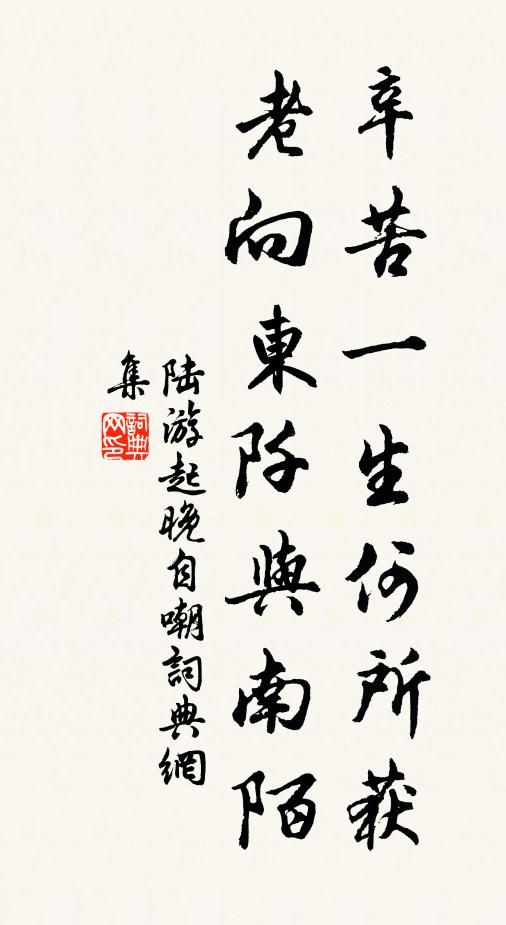 辛苦一生何所获
老向東阡與南陌
陆游起晚自嘲詞典網
集
詞典網印